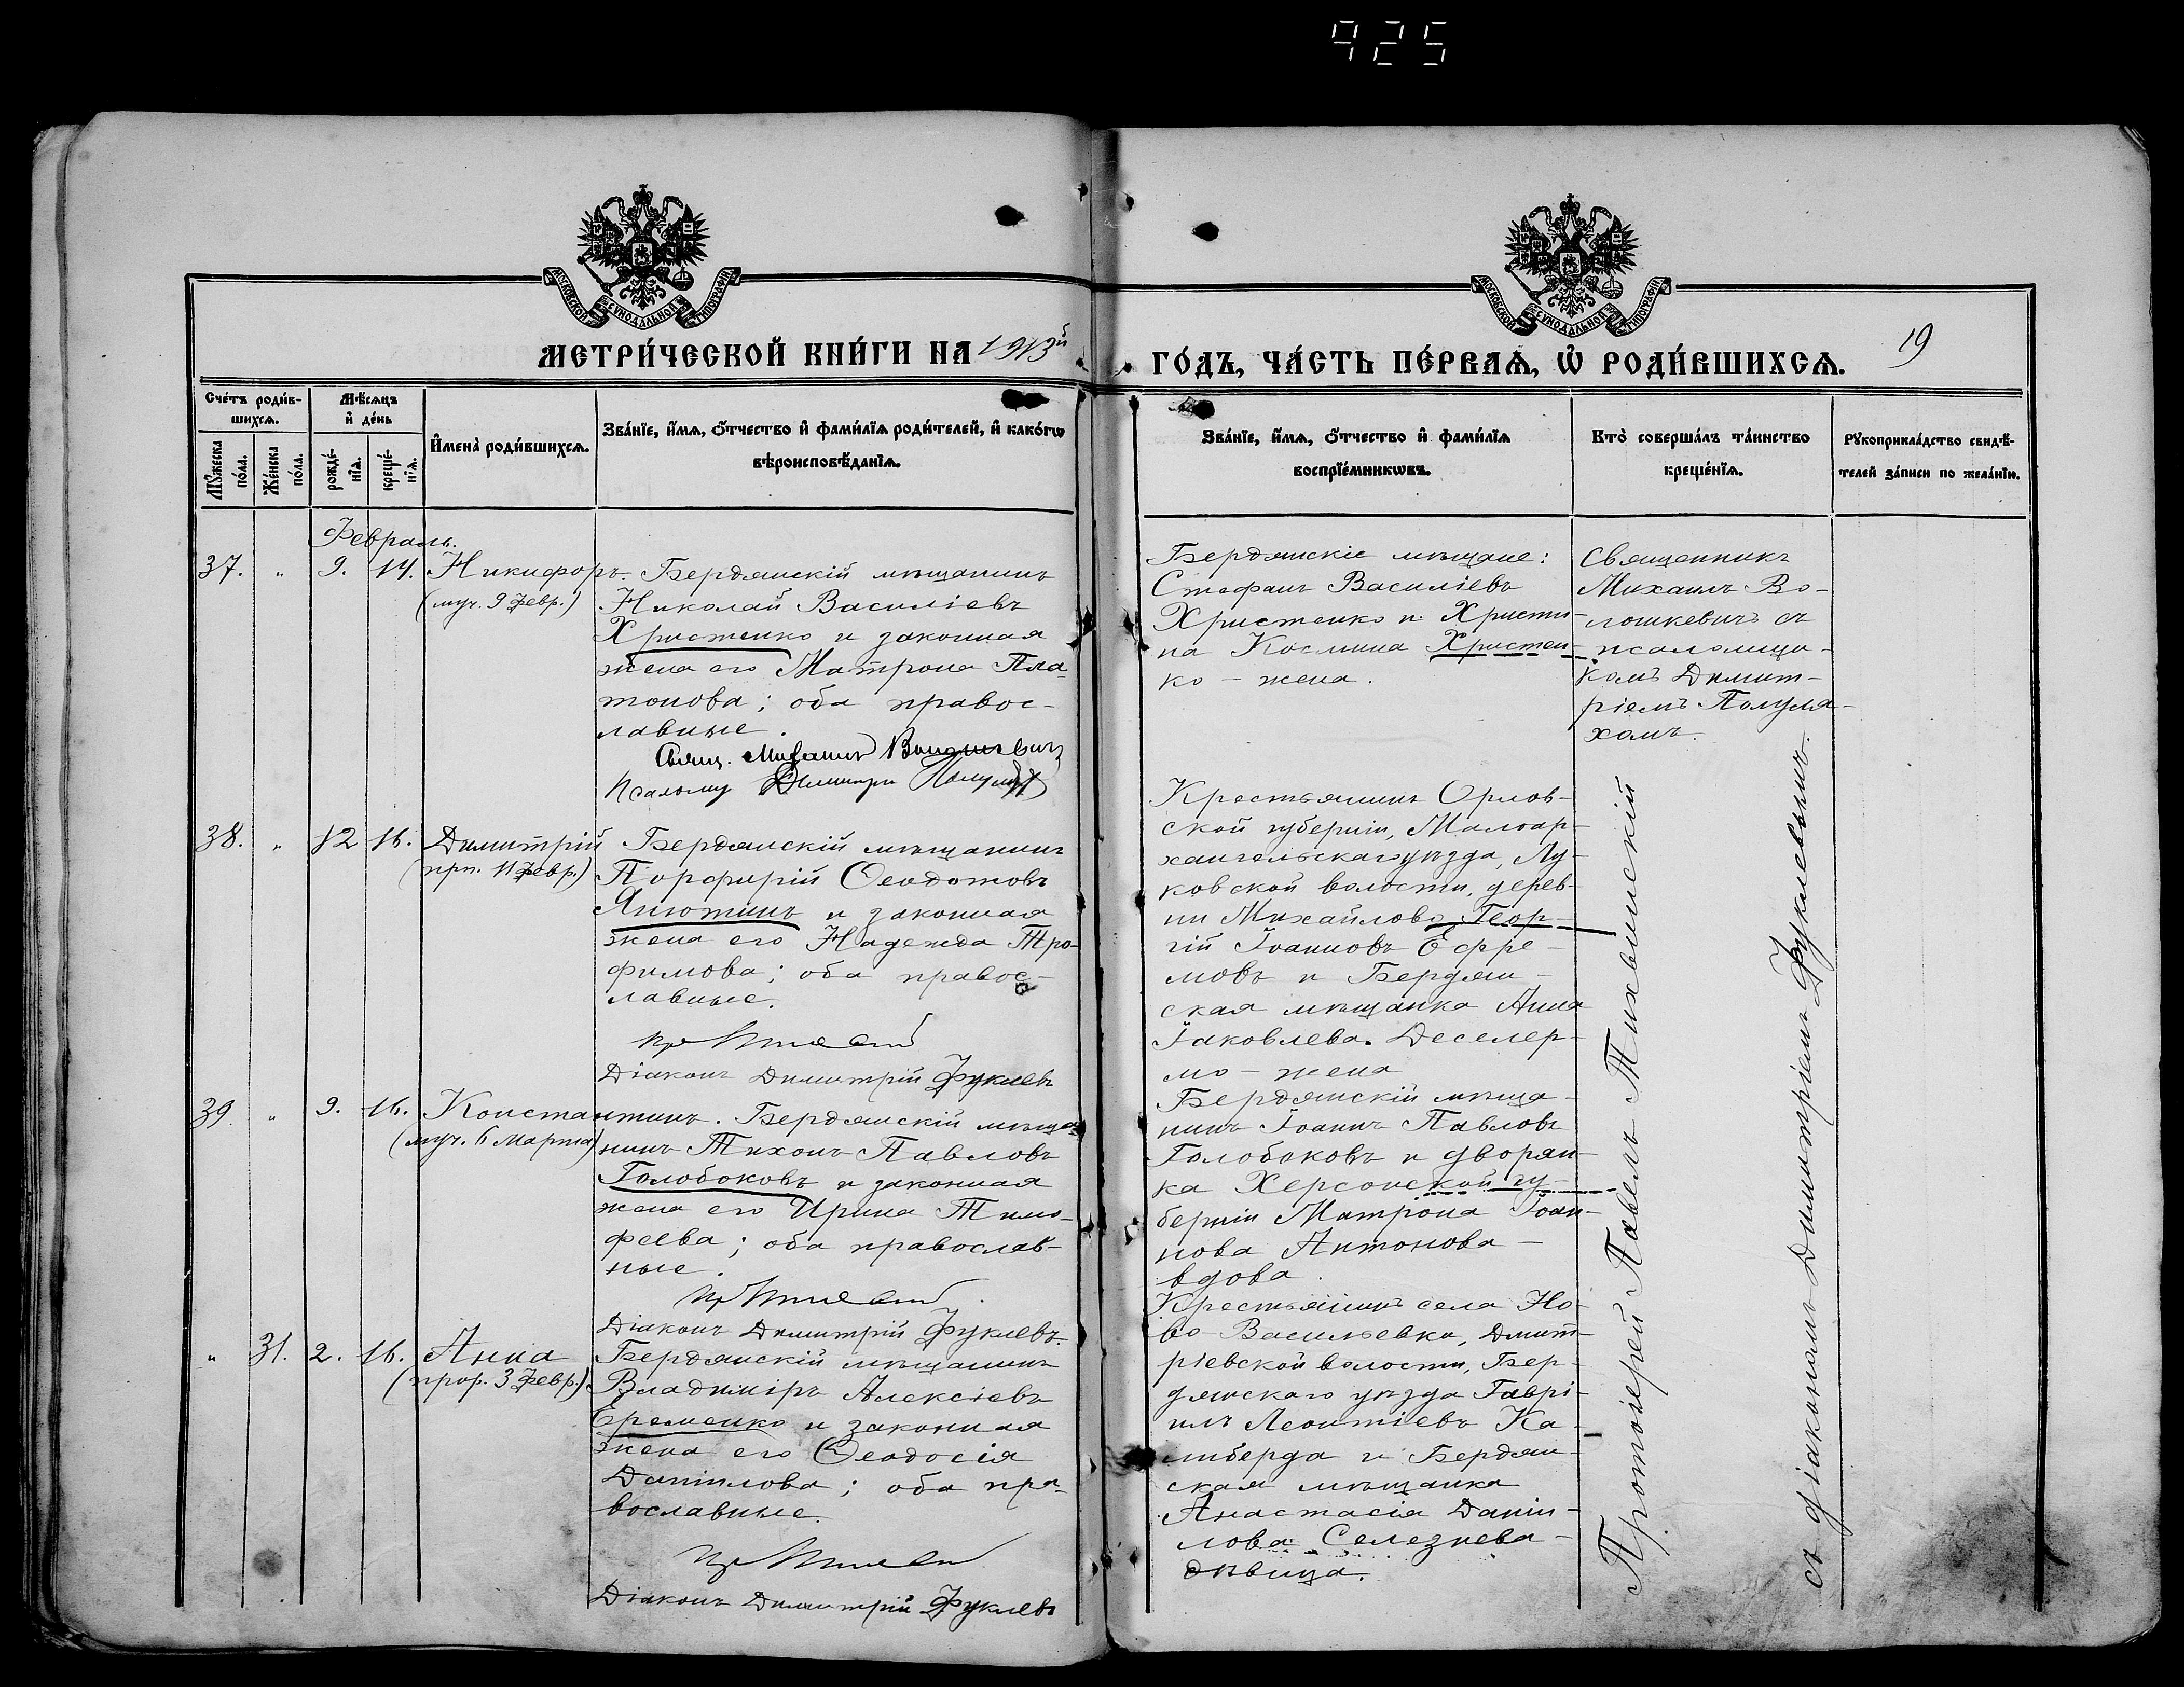 925
МОСКОВСКОЙ СУНОДАЛЬНОЙ ТИПОГРАФIИ
МОСКОВСКОЙ СУНОДАЛЬНОЙ ТИПОГРАФIИ
МЕТРИ́ЧЕСКОЙ КНИ́ГИ НА 1913й
ГО́ДЪ, ЧА́СТЬ ПЕ́РВАѦ, Ѡ҆ РОДИ́ВШИХСѦ.
19
Сче́тъ роди́в-
шихсѧ.
Мѣ́сѧцъ
и҆ де́нь
Мꙋ́жеска
по́ла.
Же́нска
по́ла.
рожде́-
нїѧ.
креще́-
нїѧ.
И҆мена̀ роди́вшихсѧ.
Зва́нїе, и҆́мѧ, ѻ҆́тчество и҆ фами́лїѧ роди́телей, и҆ како́гѡ
вѣроисповѣ́данїѧ.
Зва́нїе, и҆́мѧ, ѻ҆́тчество и҆ фами́лїѧ
воспрїе́мникѡвъ.
Кто̀ соверша́лъ та́инство
креще́нїѧ.
Рꙋкоприкла́дство свидѣ́-
телей за́писи по жела́нїю.
Февраль.
37. " 9. 14. Никифоръ.
(муч. 9 Февр.)
Бердянскій мѣщанинъ
Николай Василіевъ
Христенко и законная
жена его Матрона Пла-
тонова; оба правос-
лавные.
Свящ. Михаилъ Волошкевичъ
Псаломщ Димитрій Полулях
Бердянскіе мѣщане:
Стефанъ Василіевъ
Христенко и Христи-
на Космина Христен-
ко - жена.
Священникъ
Михаилъ Во-
лошкевичъ съ
псаломщи-
комъ Димит-
ріемъ Полуля-
хомъ.
38. " 12 16. Димитрій
(прп. 11 Февр.)
Бердянскій мѣщанинъ
Порфирій Ѳеодотовъ
Янютинъ и законная
жена его Надежда Тро-
фимова; оба правос-
лавные.
Діаконъ Димитрій Фуклевъ
Крестьянинъ Орлов-
ской губерніи, Малоар-
хангельскаго уѣзда, Лу-
ковской волости, дерев-
ни Михайлово Геор-
гій Іоанновъ Ефре-
мовъ и Бердян-
ская мѣщанка Анна
Іаковлева Деселер-
мо - жена
39. " 9. 16. Константинъ.
(муч. 6 Марта)
Бердянскій мѣща-
нинъ Тихонъ Павловъ
Голобоковъ и законная
жена его Ирина Тимо-
феева; оба православ-
ные.
Діаконъ Димитрій Фуклевъ.
Бердянскій мѣща-
нинъ Іоаннъ Павловъ
Голобоковъ и дворян-
ка Херсонской гу-
берніи Матрона Іоан-
нова Антонова -
вдова.
" 31. 2. 16. Анна
(прор. 3 Февр.)
Бердянскій мѣщанинъ
Владиміръ Алексіевъ
Еременко и законная
жена его Ѳеодосія
Даніилова; оба пра-
вославные.
Діаконъ Димитрій Фуклевъ
Крестьянинъ села Но-
во Васильевки, Дмит-
ріевской волости, Бер-
дянскаго уѣзда Гаврі-
илъ Леонтіевъ Ка-
либерда и Бердян-
ская мѣщанка
Анастасія Даніи-
лова Селезнева -
дѣвица.
Протоіерей Павелъ Тихвинскій
съ діакономъ Димитріемъ Фуклевымъ.